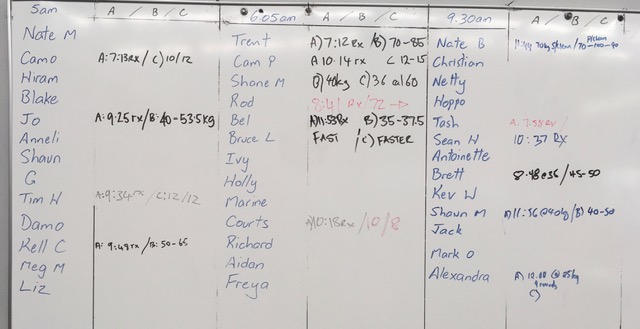 5am A / B / C
Nate M
Camo A: 7:13Rx / C) 10/12
Hiram
Blake
Jo A: 9:25rx / B: 40-53.5kg
Anneli
Shaun
G
Tim W A: 9:34rx / C: 12/12
Damo
Kell C A: 9:49rx / B: 50-65
Meg M
Liz
6:05am A / B / C
Trent A) 7:12 Rx B) 70-85
Cam P A 10:14 rx C 12-15
Shane M B) 40kg C) 36 @ 60
Rod 8:41 Rx / 72 →
Bel A) 11:53Rx B) 35-37.5
Bruce L FAST / C) FASTER
Ivy
Holly
Marine
Courts A) 10:18Rx / 10 / 8
Richard
Aidan
Freya
9.30am A / B / C
Nate B 70-100-90
Christian
Netty
Hoppo
Tash A: 7:58Rx /
Sean W 10:37 RX
Antoinette
Brett 8:48 @ 36 / 45-50
Kev W
Shaun M A) 11:56 @ 40kg / B) 40-50
Jack
Mark O
Alexandra A) 12.00 @ 25kg
4 rounds
C)